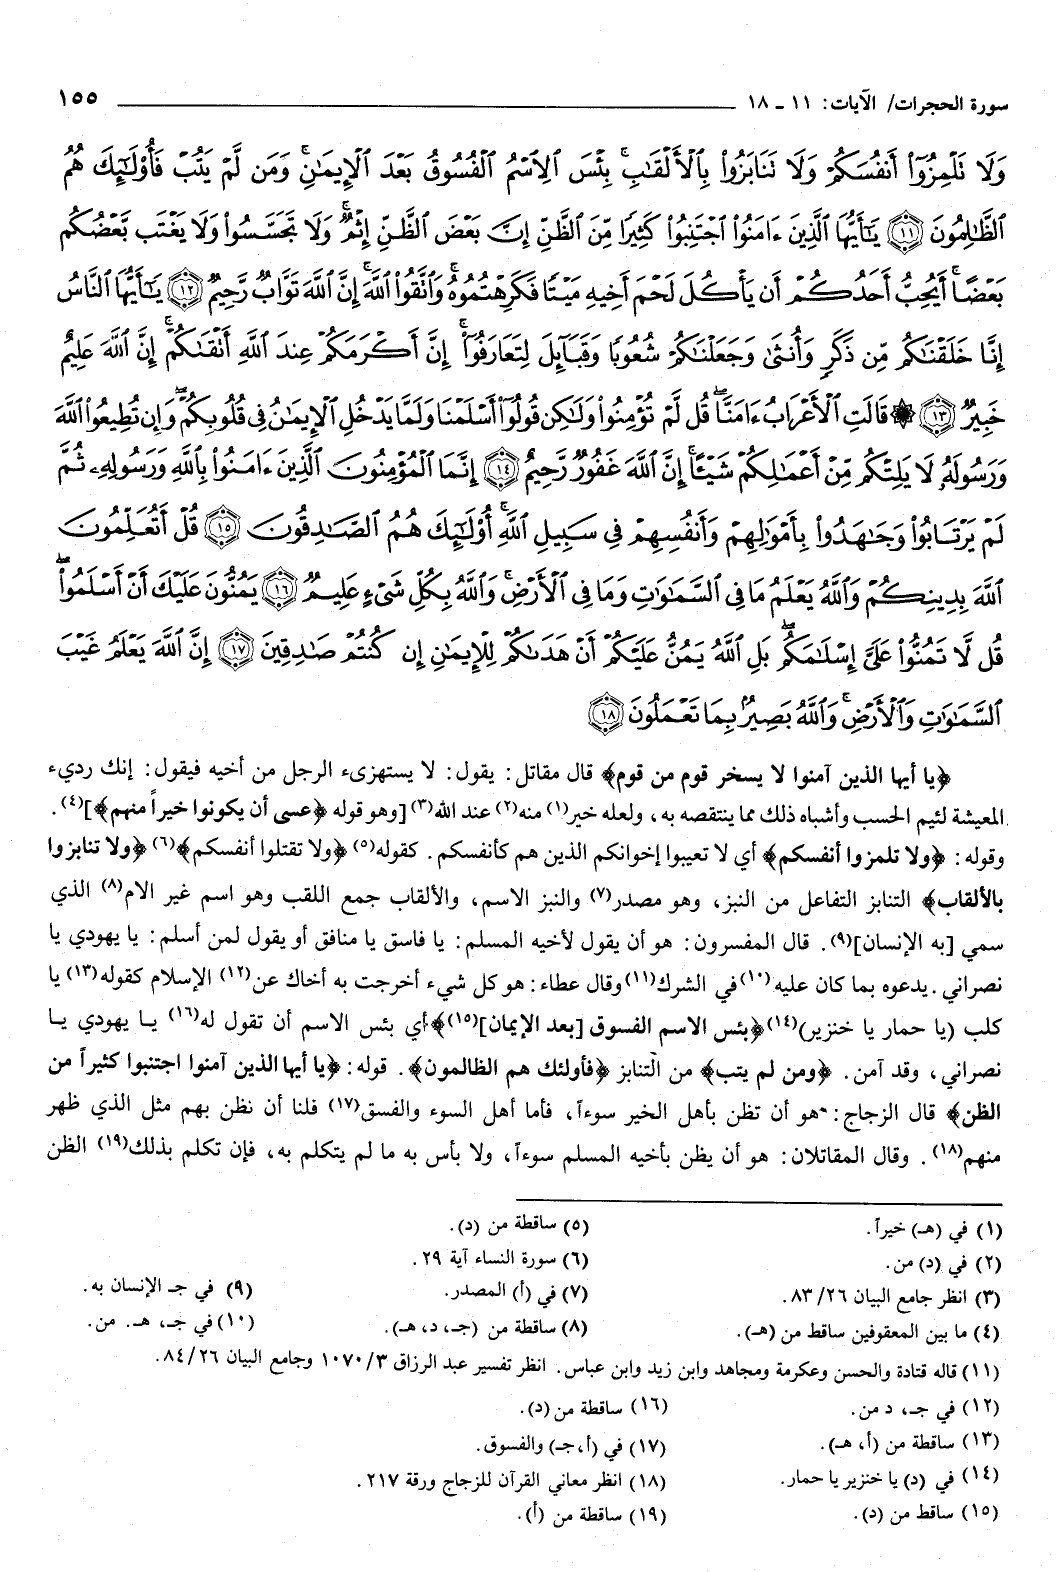 سورة الحجرات/ الآيات: ١١ ـ ١٨ ١٥٥
وَلَا تَلْمِزُوٓا۟ أَنفُسَكُمْ وَلَا تَنَابَزُوا۟ بِٱلْأَلْقَـٰبِ ۖ بِئْسَ ٱلِٱسْمُ ٱلْفُسُوقُ بَعْدَ ٱلْإِيمَـٰنِ ۚ وَمَن لَّمْ يَتُبْ فَأُو۟لَـٰٓئِكَ هُمُ
ٱلظَّـٰلِمُونَ ﴿١١﴾ يَـٰٓأَيُّهَا ٱلَّذِينَ ءَامَنُوا۟ ٱجْتَنِبُوا۟ كَثِيرًا مِّنَ ٱلظَّنِّ إِنَّ بَعْضَ ٱلظَّنِّ إِثْمٌ ۖ وَلَا تَجَسَّسُوا۟ وَلَا يَغْتَب بَّعْضُكُم
بَعْضًا ۚ أَيُحِبُّ أَحَدُكُمْ أَن يَأْكُلَ لَحْمَ أَخِيهِ مَيْتًا فَكَرِهْتُمُوهُ ۚ وَٱتَّقُوا۟ ٱللَّهَ ۚ إِنَّ ٱللَّهَ تَوَّابٌ رَّحِيمٌ ﴿١٢﴾ يَـٰٓأَيُّهَا ٱلنَّاسُ
إِنَّا خَلَقْنَـٰكُم مِّن ذَكَرٍ وَأُنثَىٰ وَجَعَلْنَـٰكُمْ شُعُوبًا وَقَبَآئِلَ لِتَعَارَفُوٓا۟ ۚ إِنَّ أَكْرَمَكُمْ عِندَ ٱللَّهِ أَتْقَىٰكُمْ ۚ إِنَّ ٱللَّهَ عَلِيمٌ
خَبِيرٌ ﴿١٣﴾ ۞ قَالَتِ ٱلْأَعْرَابُ ءَامَنَّا ۖ قُل لَّمْ تُؤْمِنُوا۟ وَلَـٰكِن قُولُوٓا۟ أَسْلَمْنَا وَلَمَّا يَدْخُلِ ٱلْإِيمَـٰنُ فِى قُلُوبِكُمْ ۖ وَإِن تُطِيعُوا۟ ٱللَّهَ
وَرَسُولَهُۥ لَا يَلِتْكُم مِّنْ أَعْمَـٰلِكُمْ شَيْـًٔا ۚ إِنَّ ٱللَّهَ غَفُورٌ رَّحِيمٌ ﴿١٤﴾ إِنَّمَا ٱلْمُؤْمِنُونَ ٱلَّذِينَ ءَامَنُوا۟ بِٱللَّهِ وَرَسُولِهِۦ ثُمَّ
لَمْ يَرْتَابُوا۟ وَجَـٰهَدُوا۟ بِأَمْوَٰلِهِمْ وَأَنفُسِهِمْ فِى سَبِيلِ ٱللَّهِ ۚ أُو۟لَـٰٓئِكَ هُمُ ٱلصَّـٰدِقُونَ ﴿١٥﴾ قُلْ أَتُعَلِّمُونَ
ٱللَّهَ بِدِينِكُمْ وَٱللَّهُ يَعْلَمُ مَا فِى ٱلسَّمَـٰوَٰتِ وَمَا فِى ٱلْأَرْضِ ۚ وَٱللَّهُ بِكُلِّ شَىْءٍ عَلِيمٌ ﴿١٦﴾ يَمُنُّونَ عَلَيْكَ أَنْ أَسْلَمُوا۟ ۖ
قُل لَّا تَمُنُّوا۟ عَلَىَّ إِسْلَـٰمَكُم ۖ بَلِ ٱللَّهُ يَمُنُّ عَلَيْكُمْ أَنْ هَدَىٰكُمْ لِلْإِيمَـٰنِ إِن كُنتُمْ صَـٰدِقِينَ ﴿١٧﴾ إِنَّ ٱللَّهَ يَعْلَمُ غَيْبَ
ٱلسَّمَـٰوَٰتِ وَٱلْأَرْضِ ۚ وَٱللَّهُ بَصِيرٌۢ بِمَا تَعْمَلُونَ ﴿١٨﴾
﴿يا أيها الذين آمنوا لا يسخر قوم من قوم﴾ قال مقاتل: يقول: لا يستهزىء الرجل من أخيه فيقول: إنك رديء
المعيشة لئيم الحسب وأشباه ذلك مما ينتقصه به، ولعله خير(١) منه(٢) عند الله(٣) [وهو قوله ﴿عسى أن يكونوا خيراً منهم﴾](٤).
وقوله: ﴿ولا تلمزوا أنفسكم﴾ أي لا تعيبوا إخوانكم الذين هم كأنفسكم. كقوله(٥) ﴿ولا تقتلوا أنفسكم﴾(٦) ﴿ولا تنابزوا
بالألقاب﴾ التنابز التفاعل من النبز، وهو مصدر(٧) والنبز الاسم، والألقاب جمع اللقب وهو اسم غير الام(٨) الذي
سمي [به الإنسان](٩). قال المفسرون: هو أن يقول لأخيه المسلم: يا فاسق يا منافق أو يقول لمن أسلم: يا يهودي يا
نصراني. يدعوه بما كان عليه(١٠) في الشرك(١١) وقال عطاء: هو كل شيء أخرجت به أخاك عن(١٢) الإسلام كقوله(١٣) يا
كلب (يا حمار يا خنزير)(١٤) ﴿بئس الاسم الفسوق [بعد الإيمان](١٥)﴾ أي بئس الاسم أن تقول له(١٦) يا يهودي يا
نصراني، وقد آمن. ﴿ومن لم يتب﴾ من التنابز ﴿فأولئك هم الظالمون﴾. قوله: ﴿يا أيها الذين آمنوا اجتنبوا كثيراً من
الظن﴾ قال الزجاج: هو أن تظن بأهل الخير سوءاً، فأما أهل السوء والفسق(١٧) فلنا أن نظن بهم مثل الذي ظهر
منهم(١٨). وقال المقاتلان: هو أن يظن بأخيه المسلم سوءاً، ولا بأس به ما لم يتكلم به، فإن تكلم بذلك(١٩) الظن
(١) في (هـ) خيراً.
(٢) في (د) من.
(٣) انظر جامع البيان ٢٦/ ٨٣.
(٤) ما بين المعقوفين ساقط من (هـ).
(٥) ساقطة من (د).
(٦) سورة النساء آية ٢٩.
(٧) في (أ) المصدر.
(٨) ساقطة من (جـ، د، هـ).
(٩) في جـ الإنسان به.
(١٠) في جـ، هـ. من.
(١١) قاله قتادة والحسن وعكرمة ومجاهد وابن زيد وابن عباس. انظر تفسير عبد الرزاق ٣/ ١٠٧٠ وجامع البيان ٢٦/ ٨٤.
(١٢) في جـ، د من.
(١٣) ساقطة من (أ، هـ).
(١٤) في (د) يا خنزير يا حمار.
(١٥) ساقط من (د).
(١٦) ساقطة من (د).
(١٧) في (أ، جـ) والفسوق.
(١٨) انظر معاني القرآن للزجاج ورقة ٢١٧.
(١٩) ساقطة من (أ).